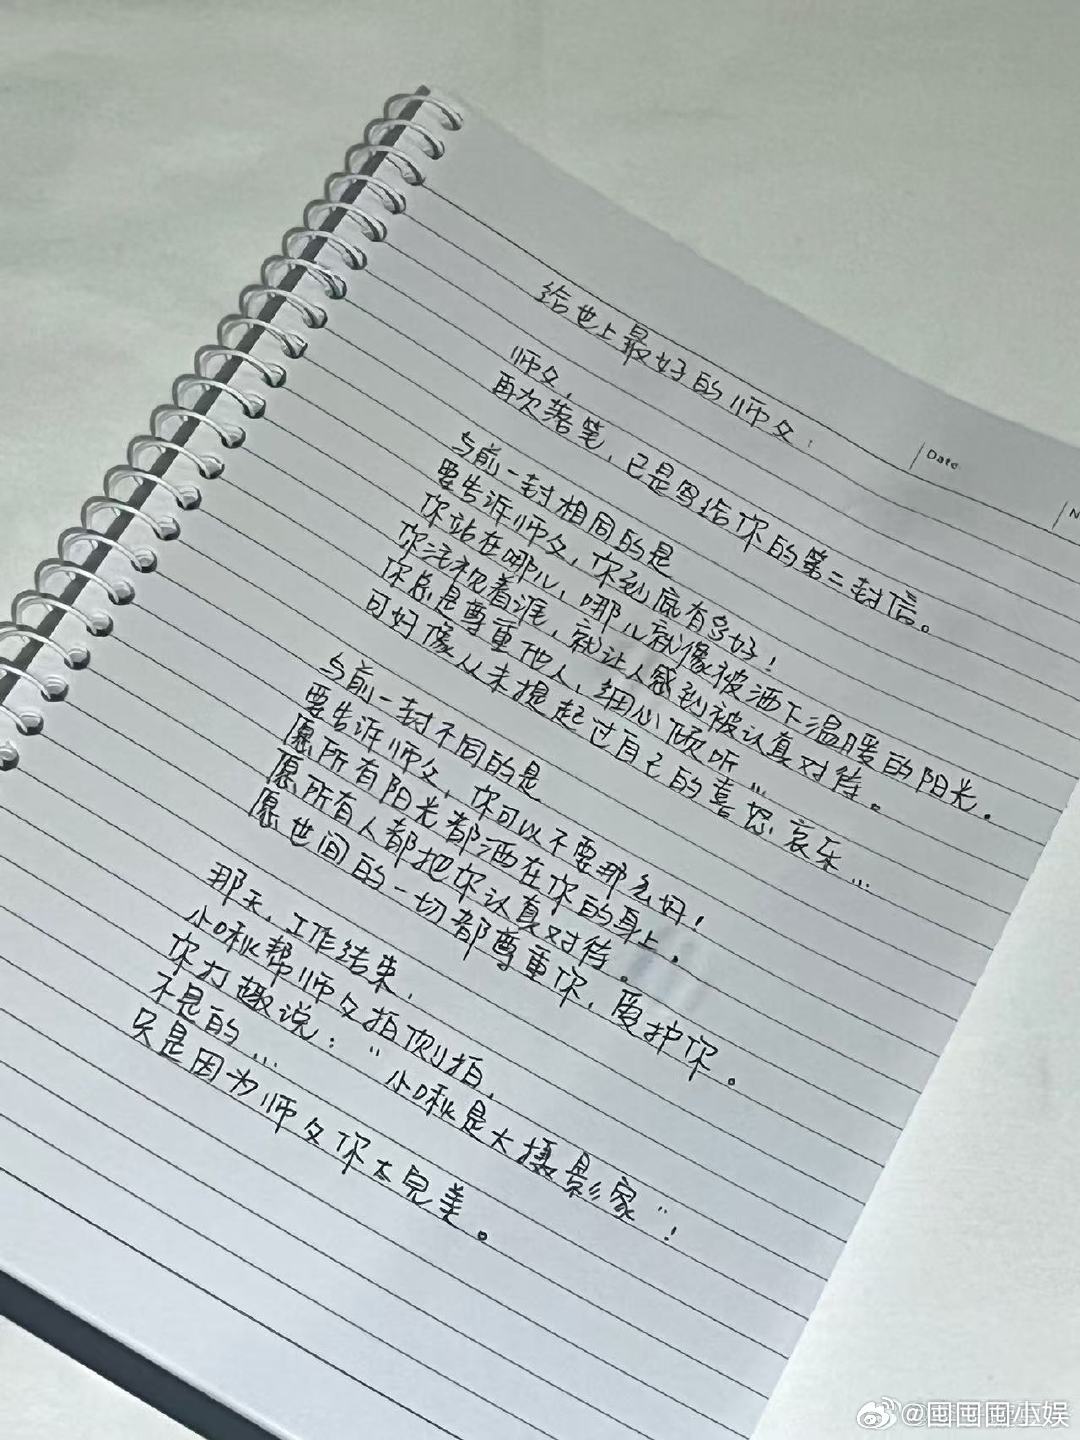 给世上最好的师父:
Date
N
师父,
再次落笔,已是写给你的第二封信。
与前一封相同的是
要告诉师父,你到底有多好!
你站在哪儿,哪儿就像被洒下温暖的阳光,
你注视着谁,就让人感到被认真对待。
你总是尊重他人,细心倾听...
可好像从未提起过自己的喜怒哀乐...
与前一封不同的是
要告诉师父,你可以不要那么好!
愿所有阳光都洒在你的身上,
愿所有人都把你认真对待。
愿世间的一切都尊重你,爱护你。
那天,工作结束,
小啾帮师父拍侧拍,
你打趣说:“小啾是大摄影家”!
不是的...
只是因为师父你太完美。
@囤囤囤小娱